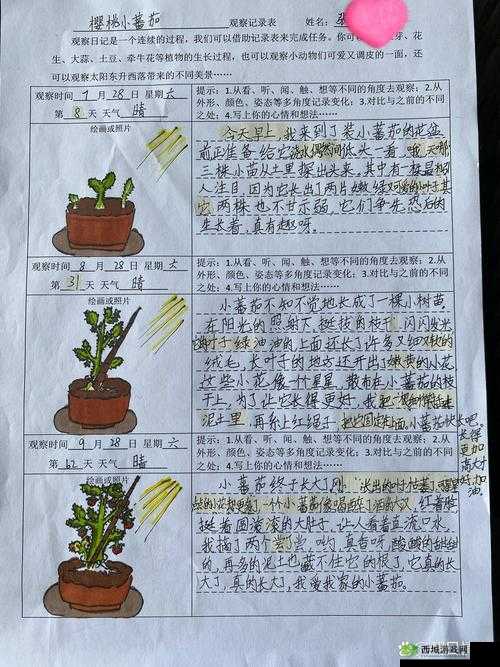 樱桃小蕃茄 观察记录表 姓名:
观察日记是一个连续的过程,我们可以借助记录表来完成任务。你可 芽、花
生、大蒜、土豆、牵牛花等植物的生长过程,也可以观察小动物们可爱又调皮的一面,还
可以观察太阳东升西落带来的不同美景……
观察时间 7 月 28 日 星期 六
第 8 天 天气 晴
绘画或照片
提示:1.从看、听、闻、触、想等不同的角度去观察;2.从
外形、颜色、姿态等多角度记录变化;3.对比与之前的不同
之处;4.写上你的心情和想法……
今天早上,我来到了装小蕃茄的花盆
前正准备给它浇水偶然间低头一看,哦天哪
三棵小苗从土里探出头来。其中有一棵最
人注目,因为它长出了两片嫩绿 的叶子其
它两株也不甘示弱,它们争先恐后的
生长着,真有趣呀。
观察时间 8 月 28 日 星期 六
第 31 天 天气 晴
绘画或照片
提示:1.从看、听、闻、触、想等不同的角度去观察;2.从
外形、颜色、姿态等多角度记录变化;3.对比与之前的不同
之处;4.写上你的心情和想法……
小蕃茄不知不觉地长成了一棵小树苗
在阳光的照射下,挺枝 枝干,闪闪发光
叶子绿油油的上面还长了许多又细又软的
绒毛,长叶子的地方还开出了嫩黄的小花
这些小花像一个星星,散布在小蕃茄的枝
干上,为了让它长得更好,我把
泥土里,再系上红绳子,把它固定 面,小蕃茄快长吧,
去得更加高大才好加油
观察时间 9 月 28 日 星期 六
第 62 天 天气 晴
绘画或照片
提示:1.从看、听、闻、触、想等不同的角度去观察;2.从
外形、颜色、姿态等多角度记录变化;3.对比与之前的不同
之处;4.写上你的心情和想法……
小蕃茄终于长大了 , 出的叶 了
的小花 了一个小蕃茄像喝醉了酒的汉,红着脸
挺着圆滚滚的大肚子,让人看着直流口水,
我摘了两个尝尝,哟,真香呀酸酸的甜甜
的,再多的泥土也藏不住它的根了,它真的长
大了,真的长大了,我爱我家的小蕃茄。
西城游戏网